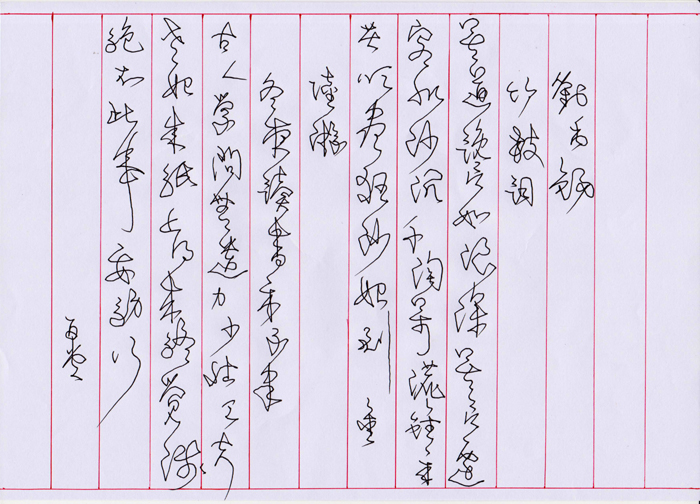 劉禹錫
竹枝詞
莫道讒言如浪深莫言遷
客似沙沉千淘萬漉雖辛
苦吹盡狂沙始到金
陸游
冬夜讀書示子聿
古人學問無遺力少壯工夫
老始成紙上得來終覺淺
絕知此事要躬行